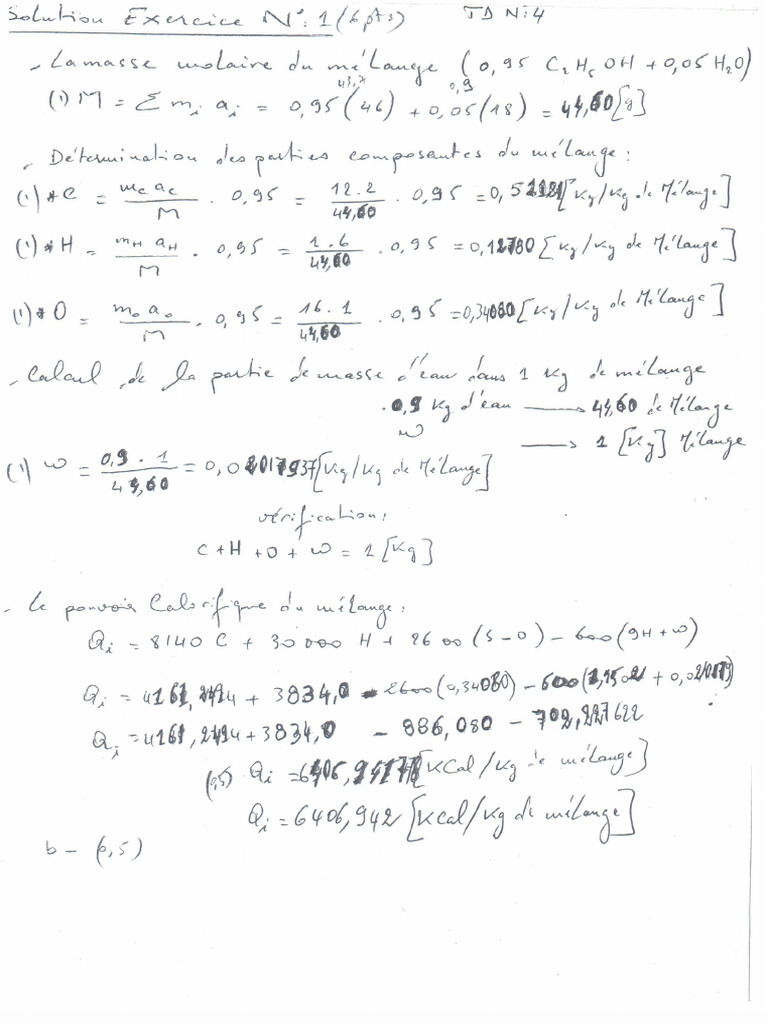 Solution Exercice N°: 1 (6 pts) TD N: 4
- La masse molaire du mélange (0,95 C2H5OH + 0,05 H2O)
43,7 0,9
(1) M = Σ mi ai = 0,95 (46) + 0,05 (18) = 44,60 [g]
- Détermination des parties composantes du mélange :
(1) * C = mc ac / M . 0,95 = 12.2 / 44,60 . 0,95 = 0,51121 [Kg/Kg de Mélange]
(1) * H = mH aH / M . 0,95 = 1.6 / 44,60 . 0,95 = 0,12780 [Kg/Kg de Mélange]
(1) * O = mo ao / M . 0,95 = 16.1 / 44,60 . 0,95 = 0,34080 [Kg/Kg de Mélange]
- Calcul de la partie de masse d'eau dans 1 Kg de mélange
0,9 Kg d'eau → 44,60 de Mélange
w → 1 [Kg] Mélange
(1) w = 0,9 . 1 / 44,60 = 0,0 [Kg/Kg de Mélange]
vérification :
C + H + O + w = 1 [Kg]
- Le pouvoir Calorifique du mélange :
Qi = 8140 C + 30 000 H + 2600 (S - O) - 600 (9H + w)
Qi = 4161,2494 + 3834,0 - 2600 (0,34080) - 600 (1,1502 + 0,0201179)
Qi = 4161,2494 + 3834,0 - 886,080 - 702,227622
(0,5) Qi = [KCal/Kg de mélange]
Qi = 6406,942 [KCal/Kg de mélange]
b - (0,5)